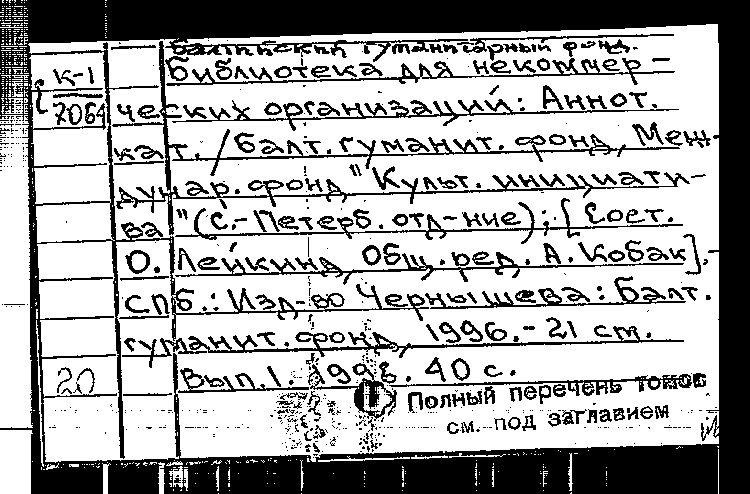 Балтийский гуманитарный фонд.
К-1 Библиотека для некоммер-
7064 ческих организаций: Аннот.
кат. / Балт. гуманит. фонд, Меж-
дунар. фонд "Культ. инициати-
ва" (С.-Петерб. отд-ние); [Сост.
О. Лейкинд, Общ. ред. А. Кобак].-
СПб.: Изд-во Чернышева: Балт.
гуманит. фонд, 1996.- 21 см.
20 Вып. 1. 1996. 40 с.
Полный перечень томов
см. под заглавием